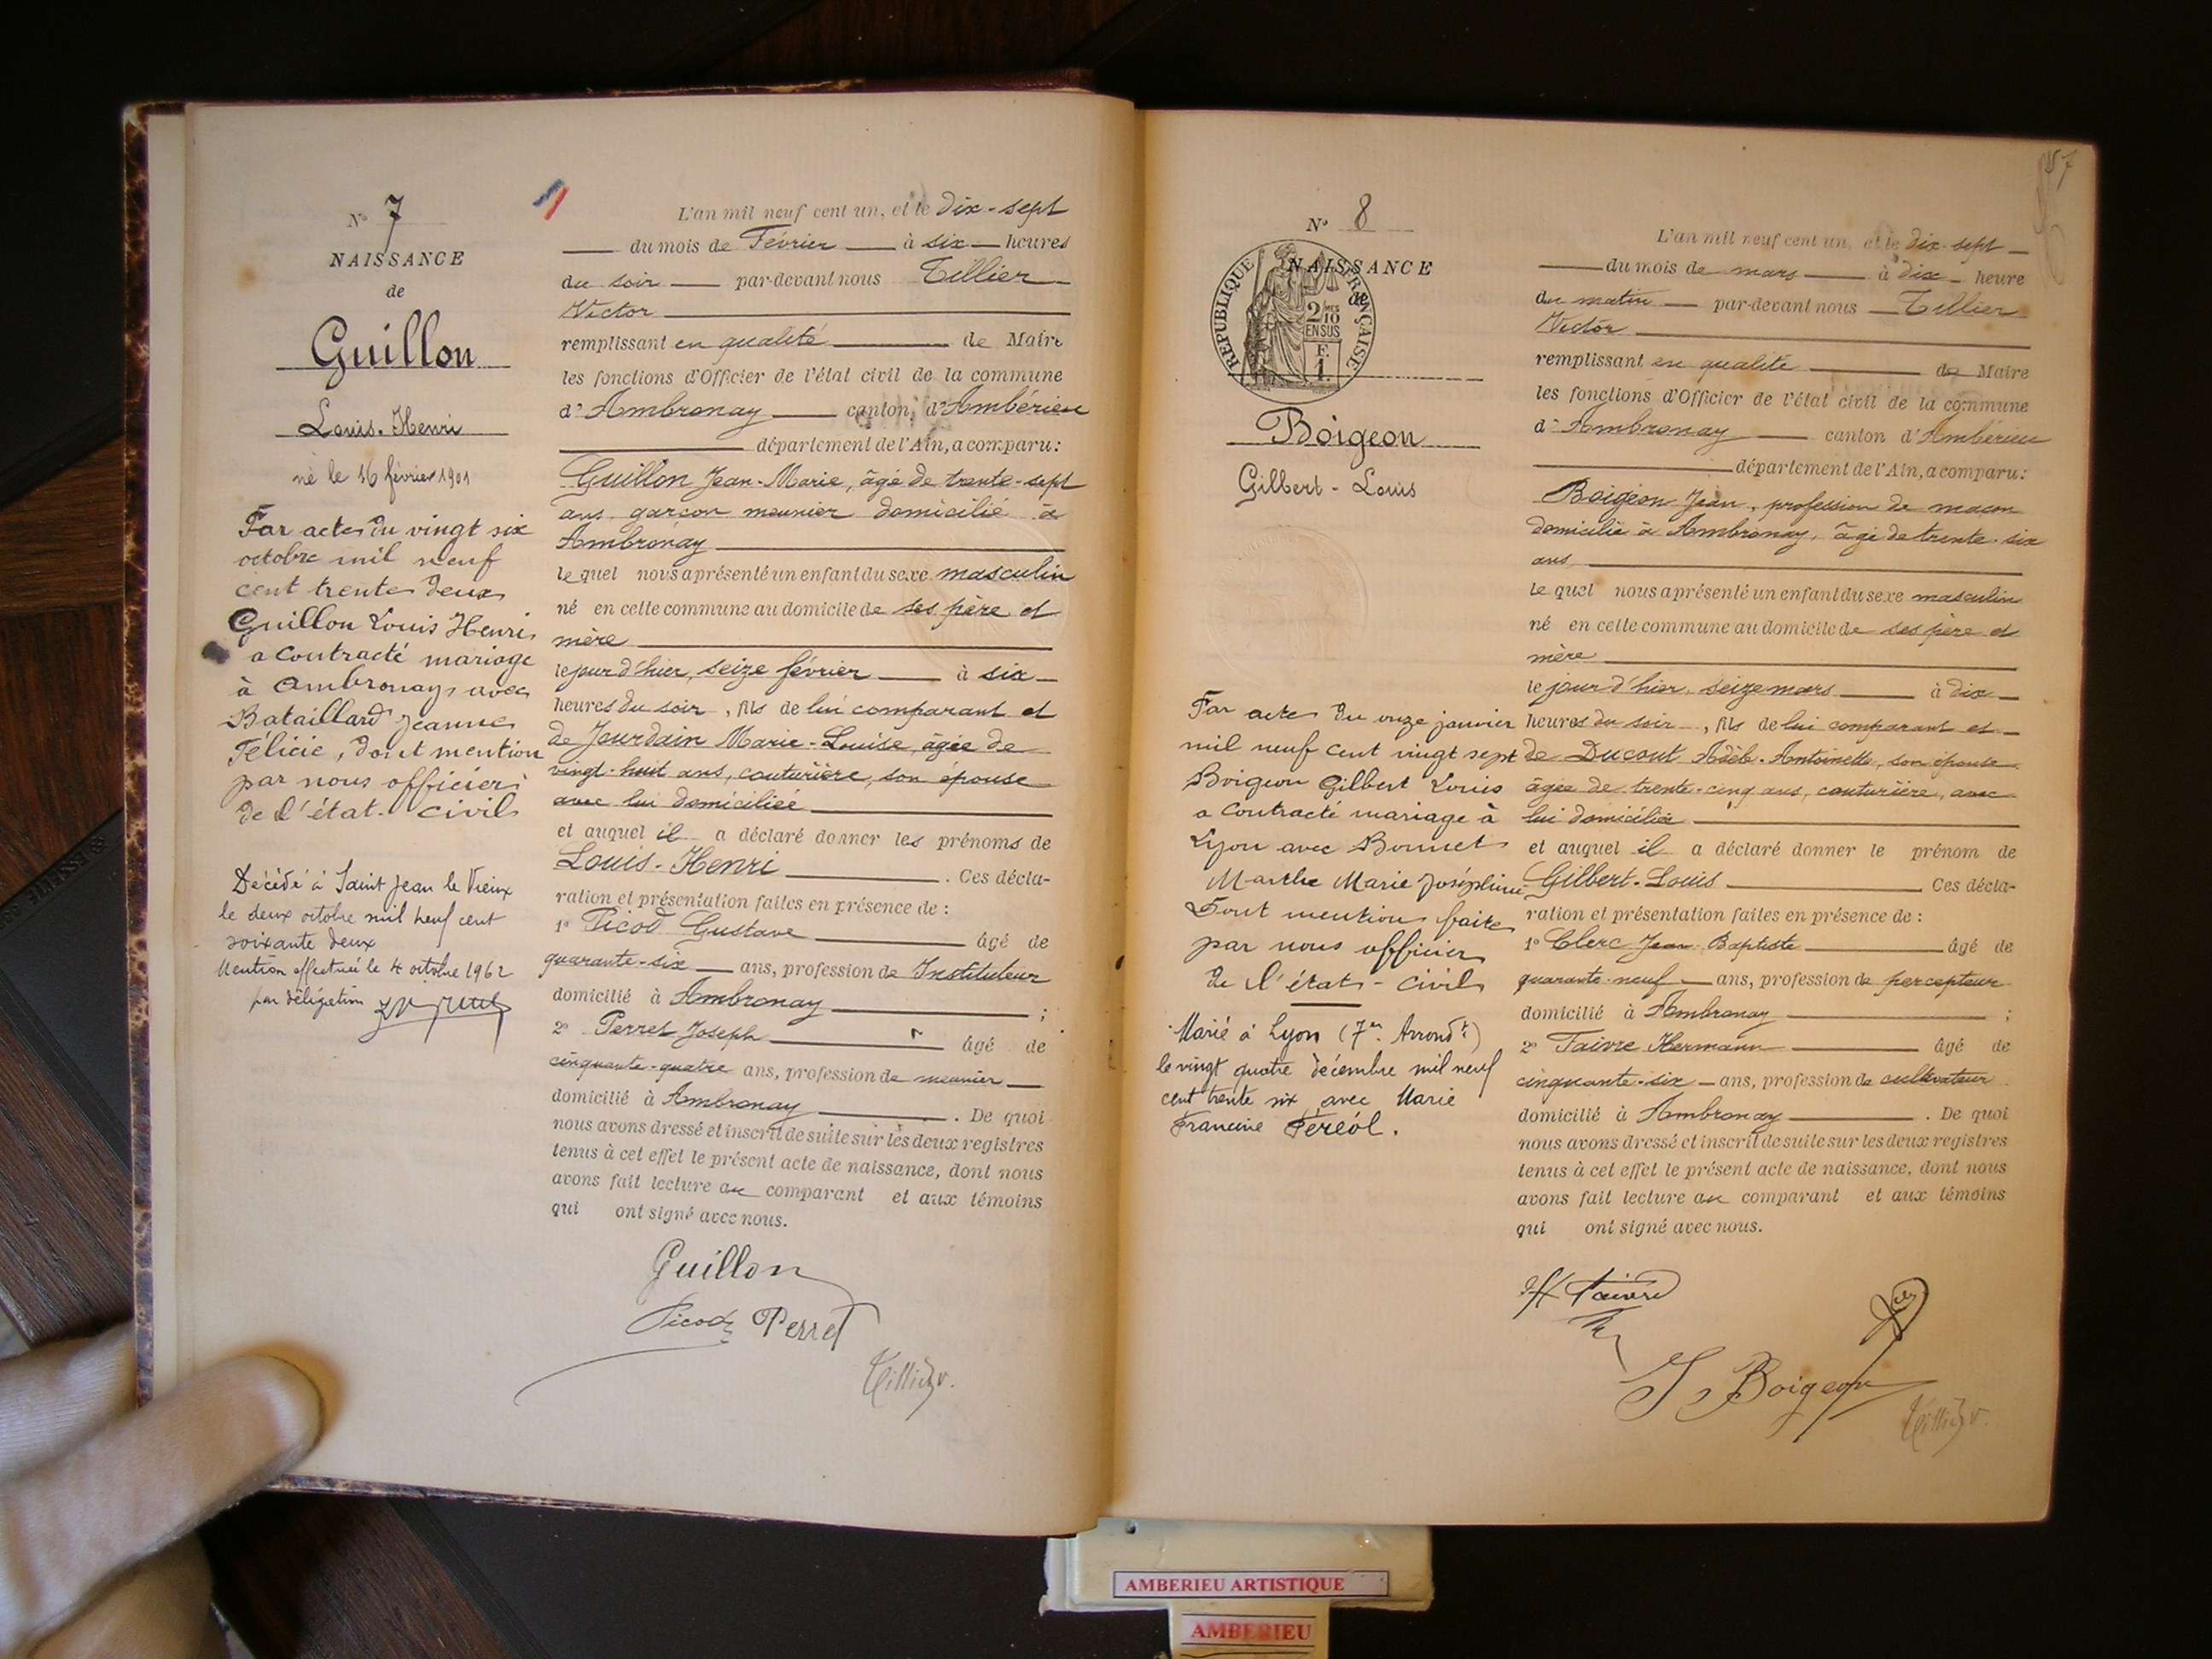 N° 7
NAISSANCE
de
Guillon
Louis-Henri
né le 16 février 1901
Par acte du vingt six
octobre mil neuf
cent trente deux
Guillon Louis Henri
a contracté mariage
à Ambronay avec
Bataillard Jeanne
Félicie, dont mention
par nous officier
de l'état-civil
Décédé à Saint Jean le Vieux
le deux octobre mil neuf cent
soixante deux
Mention effectuée le 4 octobre 1962
par délégation
L'an mil neuf cent un, et le dix-sept
du mois de Février à six heures
du soir par-devant nous Tillier
Victor
remplissant en qualité de Maire
les fonctions d'Officier de l'état civil de la commune
d'Ambronay canton d'Ambérieu
département de l'Ain, a comparu:
Guillon Jean-Marie, âgé de trente-sept
ans garçon meunier domicilié à
Ambronay
lequel nous a présenté un enfant du sexe masculin
né en cette commune au domicile de ses père et
mère
le jour d'hier, seize février à six
heures du soir, fils de lui comparant et
de Jourdain Marie-Louise, âgée de
vingt-huit ans, couturière, son épouse
avec lui domiciliée
et auquel il a déclaré donner les prénoms de
Louis-Henri . Ces décla-
ration et présentation faites en présence de :
1° Picod Gustave âgé de
quarante-six ans, profession de Instituteur
domicilié à Ambronay ;
2° Perret Joseph âgé de
cinquante-quatre ans, profession de meunier
domicilié à Ambronay . De quoi
nous avons dressé et inscrit de suite sur les deux registres
tenus à cet effet le présent acte de naissance, dont nous
avons fait lecture au comparant et aux témoins
qui ont signé avec nous.
Guillon
Picod Perret
Tillier v.
57
N° 8
NAISSANCE
de
RÉPUBLIQUE FRANÇAISE
2/10 EN SUS
F. 1.
Boigeon
Gilbert-Louis
Par acte du onze janvier
mil neuf cent vingt sept
Boigeon Gilbert Louis
a contracté mariage à
Lyon avec Bonnet
Marthe Marie Joséphine
Dont mention faite
par nous officier
de l'état-civil
Marié à Lyon (7e Arrondt)
le vingt quatre décembre mil neuf
cent trente six avec Marie
Francine Feréol.
L'an mil neuf cent un, et le dix-sept
du mois de mars à dix heure
du matin par-devant nous Tillier
Victor
remplissant en qualité de Maire
les fonctions d'Officier de l'état civil de la commune
d'Ambronay canton d'Ambérieu
département de l'Ain, a comparu:
Boigeon Jean, profession de maçon
domicilié à Ambronay, âgé de trente-six
ans
lequel nous a présenté un enfant du sexe masculin
né en cette commune au domicile de ses père et
mère
le jour d'hier, seize mars à dix
heures du soir, fils de lui comparant et
de Ducout Adèle-Antoinette, son épouse
âgée de trente-cinq ans, couturière, avec
lui domiciliée
et auquel il a déclaré donner le prénom de
Gilbert-Louis Ces décla-
ration et présentation faites en présence de :
1° Clerc Jean-Baptiste âgé de
quarante-neuf ans, profession de percepteur
domicilié à Ambronay ;
2° Faivre Hermann âgé de
cinquante-six ans, profession de cultivateur
domicilié à Ambronay . De quoi
nous avons dressé et inscrit de suite sur les deux registres
tenus à cet effet le présent acte de naissance, dont nous
avons fait lecture au comparant et aux témoins
qui ont signé avec nous.
H Faivre
J Boigeon
Tillier v.
AMBERIEU ARTISTIQUE
AMBERIEU